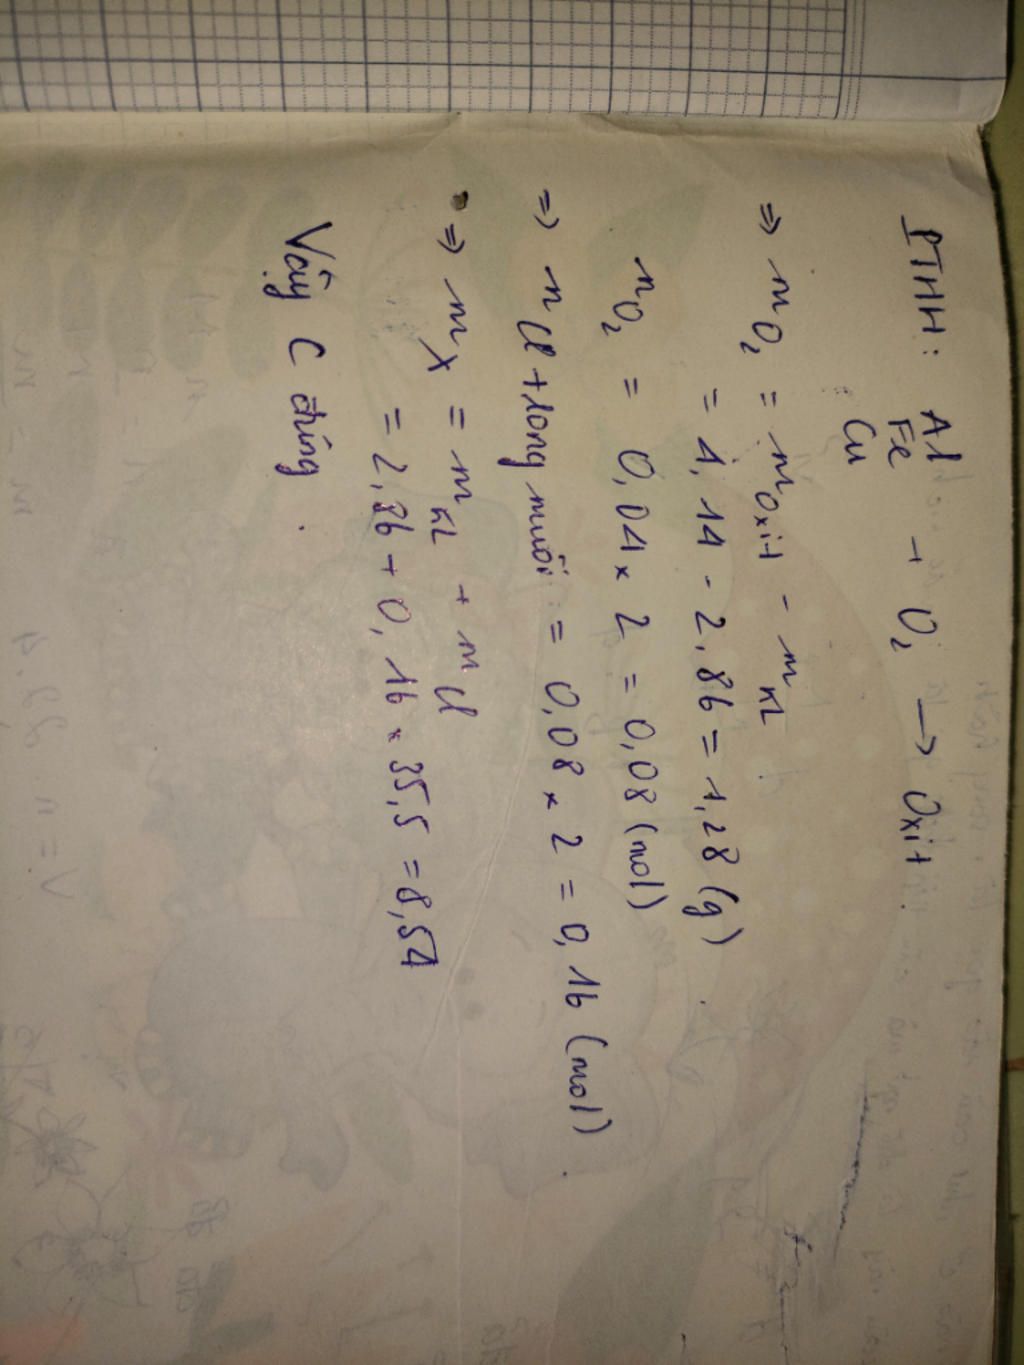 PTHH: Al
Fe + O2 → Oxit
Cu
=> mO2 = moxit - mKL
= 4,14 - 2,86 = 1,28 (g)
nO2 = 0,04 x 2 = 0,08 (mol)
=> n Cl trong muối = 0,08 x 2 = 0,16 (mol)
=> mX = mKL + mCl
= 2,86 + 0,16 x 35,5 = 8,54
Vậy C đúng.